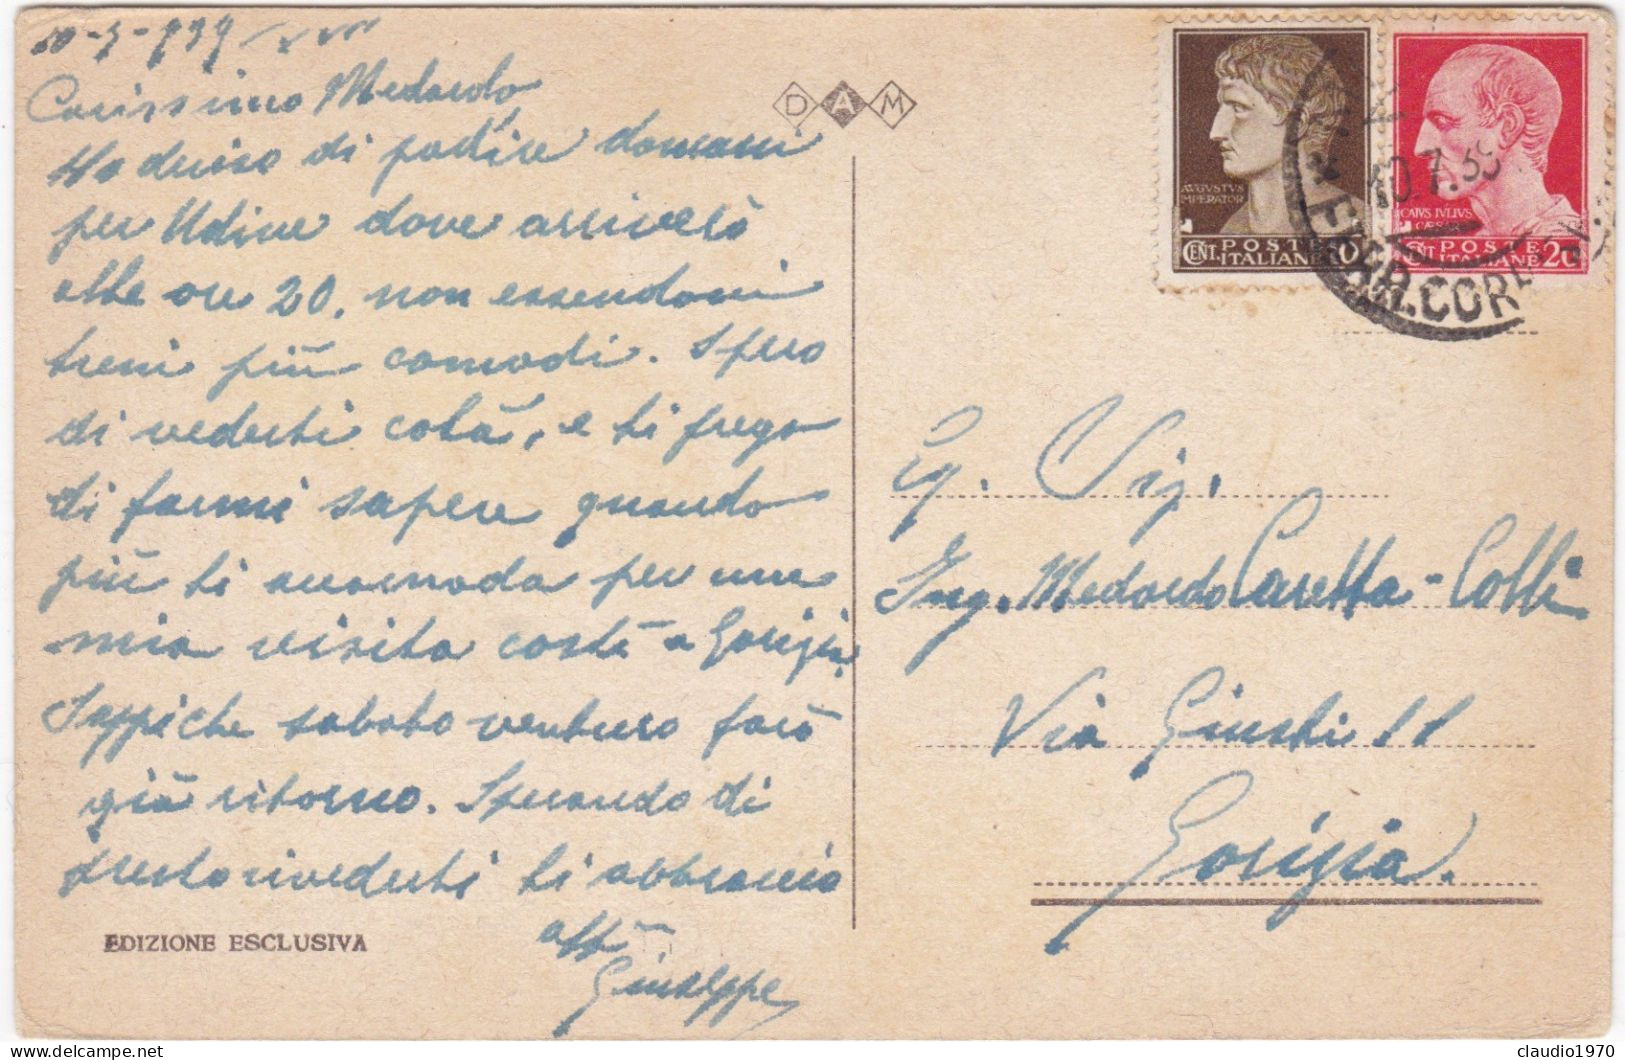 10-7-939 XVII
Carissimo Medardo
Ho deciso di partire domani
per Udine dove arriverò
alle ore 20, non essendovi
treni più comodi. Spero
di vederti colà, e ti prego
di farmi sapere quando
più ti accomoda per una
mia visita costì a Gorizia.
Sappi che sabato venturo farò
già ritorno. Sperando di
presto rivederti ti abbraccio
aff.
Giuseppe
EDIZIONE ESCLUSIVA
D A M
AVGVSTVS
IMPERATOR
CENT. POSTE ITALIANE 10
CAIVS IVLIVS
CAESAR
CENT. POSTE ITALIANE 20
10.7.39
FERR. CORR
G. Sig.
Ing. Medardo Caretta-Colli
Via Giusti 11
Gorizia.
claudio1970